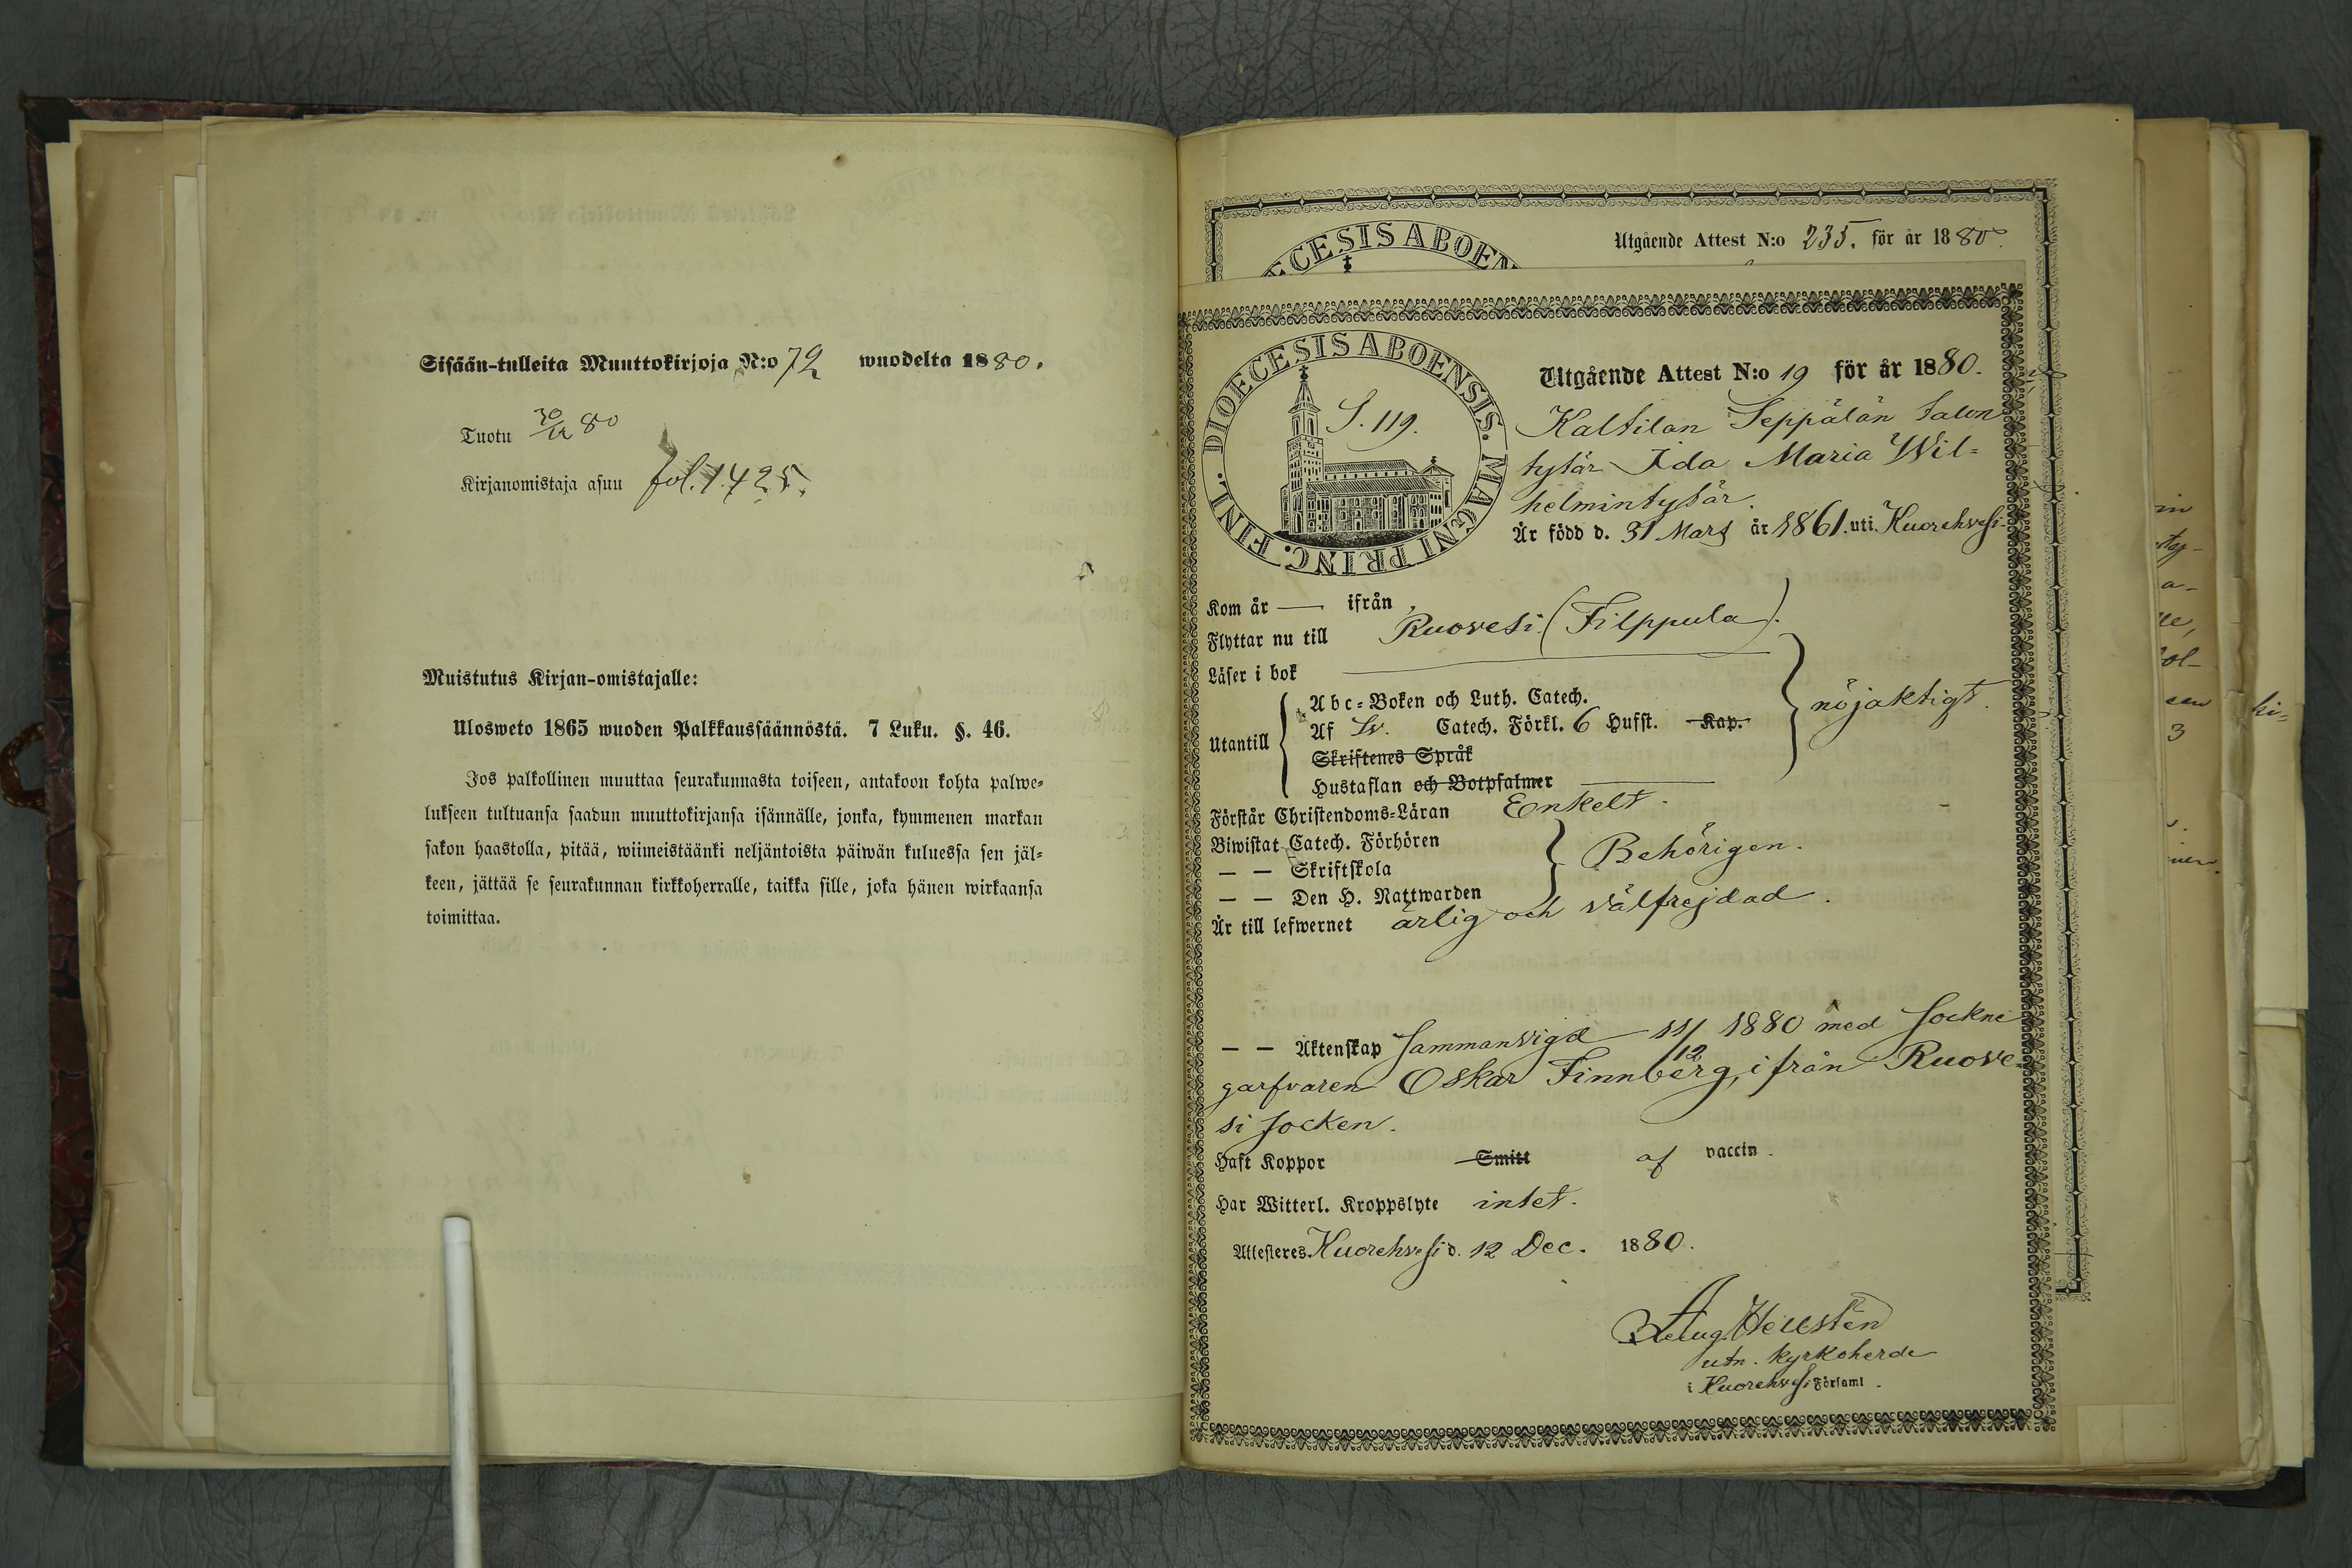 Sisään-tulleita Muuttokirjoja N:o 72 wuodelta 1880.
Tuotu 30/12 80
Kirjanomistaja asuu fol. 1425.
Muistutus Kirjan-omistajalle:
Ulosweto 1865 wuoden Palkkaussäännöstä. 7 Luku. §. 46.
Jos palkollinen muuttaa seurakunnasta toiseen, antakoon kohta palwe-
lukseen tultuansa saadun muuttokirjansa isännälle, jonka, kymmenen markan
sakon haastolla, pitää, wiimeistäänki neljäntoista päiwän kuluessa sen jäl-
keen, jättää se seurakunnan kirkkoherralle, taikka sille, joka hänen wirkaansa
toimittaa.
Utgående Attest N:o 235. för år 1880.
ŒCESIS ABOEN
DIOECESIS ABOENSIS. MAGNI PRINC. FINL.
S. 119.
Utgående Attest N:o 19 för år 1880.
Kaltilan Seppälän talon
tytär Ida Maria Wil-
helmintytär.
Är född d. 31 Mars år 1861. uti Kuorehvesi
Kom år — ifrån
Flyttar nu till Ruovesi (Filppula).
Läser i bok
Utantill
Abc-Boken och Luth. Catech.
Af Sv. Catech. Förkl. 6 Hufst. Kap.
Skriftenes Språk
Hustaflan och Botpsalmer
nöjaktigt.
Förstår Christendoms-Läran Enkelt.
Biwistat Catech. Förhören
— — Skriftskola
— — Den H. Nattwarden
Behörigen.
Är till lefwernet ärlig och välfrejdad.
— — Äktenskap Sammanvigd 11/12 1880 med Sockne
garfvaren Oskar Finnberg, ifrån Ruove-
si socken.
Haft Koppor Smitt af vaccin.
Har Witterl. Kroppslyte intet.
Attesteres Kuorehvesi d. 12 Dec. 1880.
Hellstén
utn. kyrkoherde
i Kuorehvesi Församl.